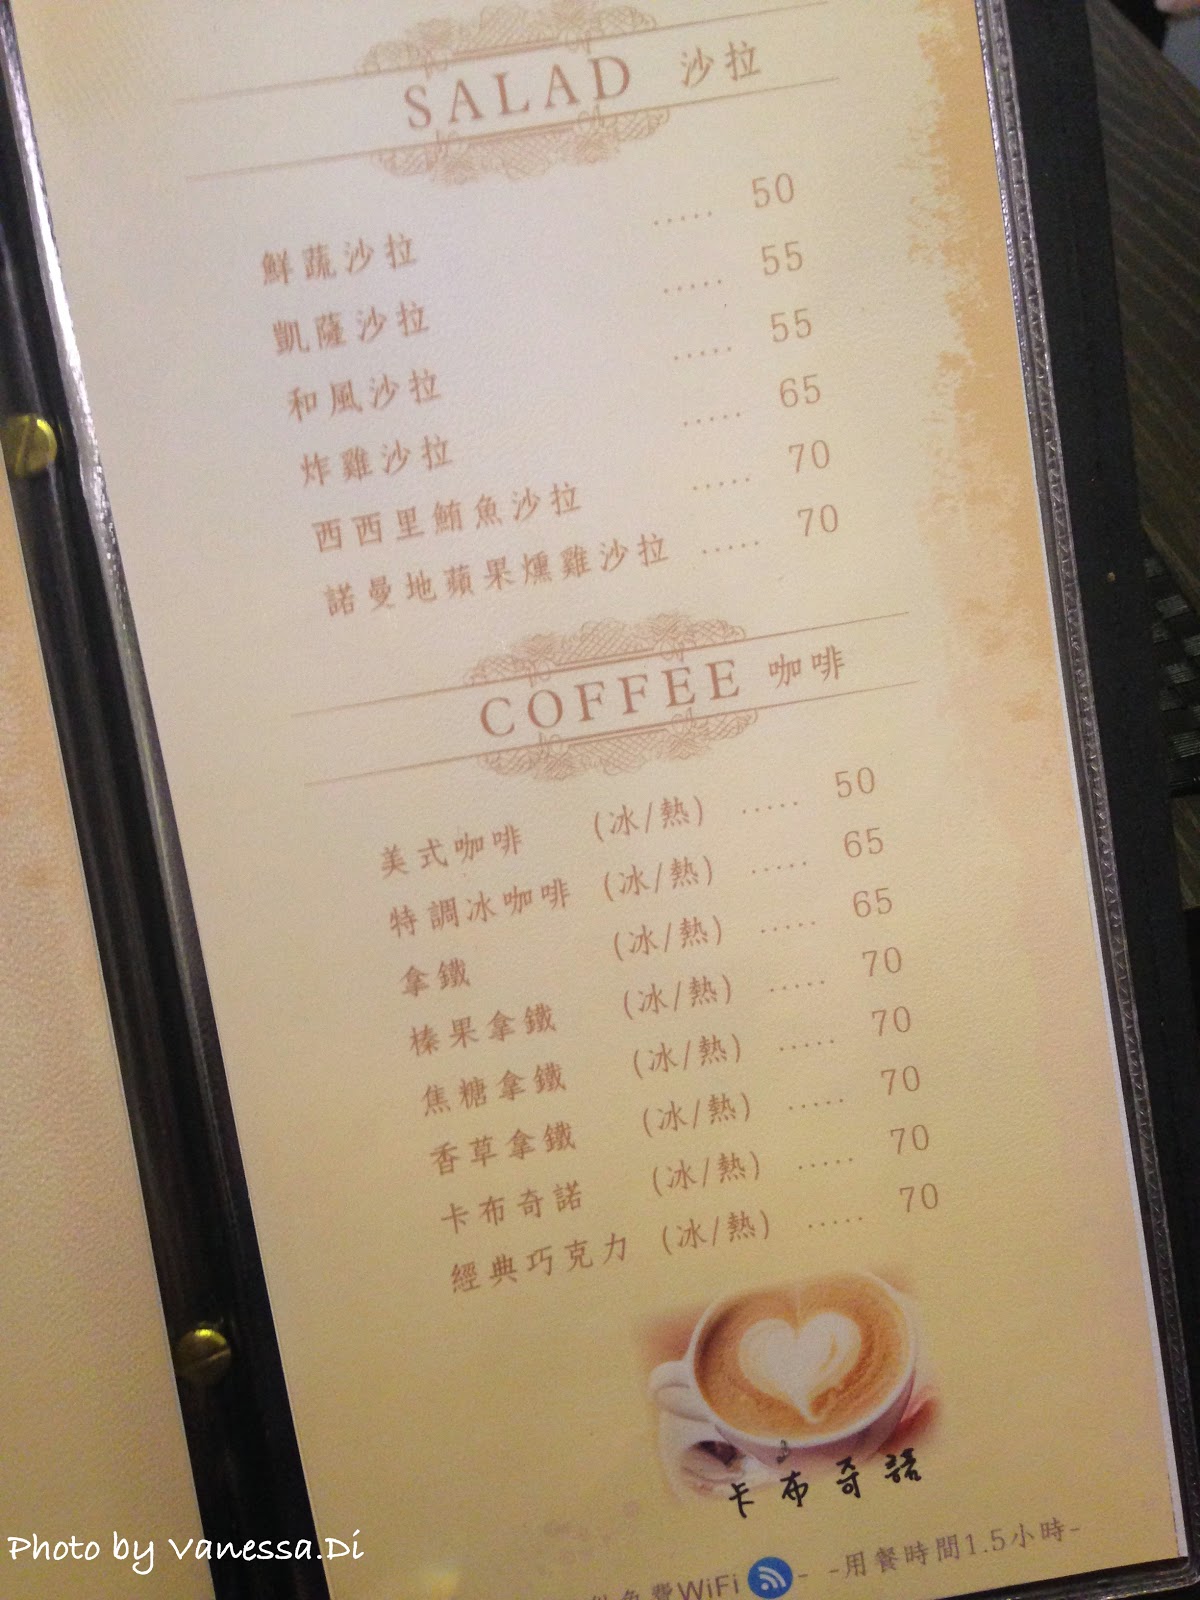 SALAD 沙拉
鮮蔬沙拉 ..... 50
凱薩沙拉 ..... 55
和風沙拉 ..... 55
炸雞沙拉 ..... 65
西西里鮪魚沙拉 ..... 70
諾曼地蘋果燻雞沙拉 ..... 70
COFFEE 咖啡
美式咖啡 (冰/熱) ..... 50
特調冰咖啡 (冰/熱) ..... 65
拿鐵 (冰/熱) ..... 65
榛果拿鐵 (冰/熱) ..... 70
焦糖拿鐵 (冰/熱) ..... 70
香草拿鐵 (冰/熱) ..... 70
卡布奇諾 (冰/熱) ..... 70
經典巧克力 (冰/熱) ..... 70
卡布奇諾
免費WiFi - -用餐時間1.5小時-
Photo by Vanessa.Di